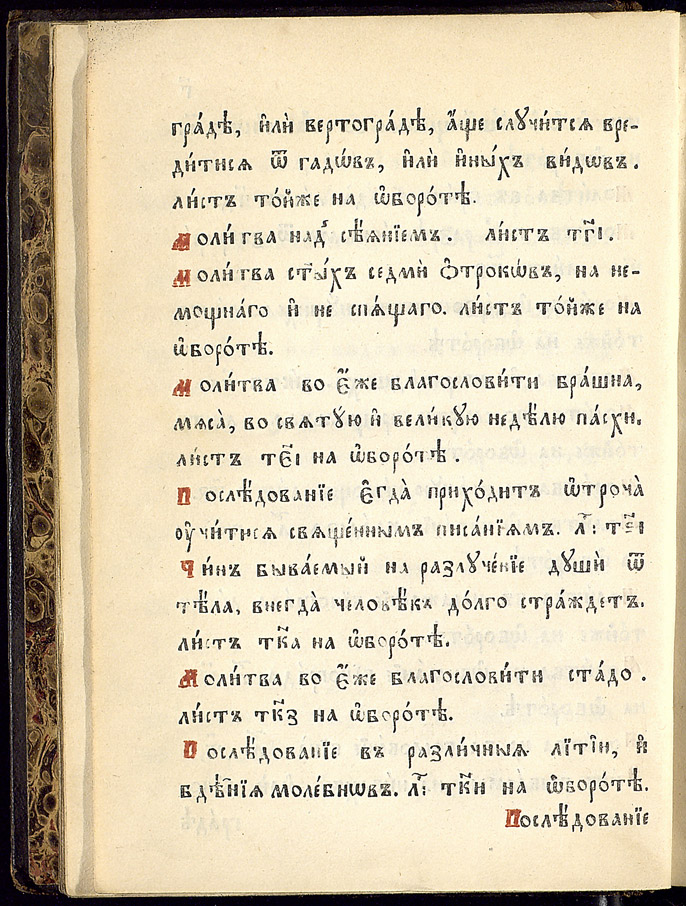 гра́дѣ, и҆лѝ вертогра́дѣ, а҆́ще слꙋчи́тсѧ вре-
ди́тисѧ ѿ га́дѡвъ, и҆лѝ и҆ны́хъ ви́дѡвъ.
ли́стъ то́йже на ѡ҆боро́тѣ.
Моли́тва над̾ сѣ́ѧнїемъ. ли́стъ тг҃і.
Моли́тва ст҃ы́хъ седмѝ ѻ҆́трокѡвъ, на не-
мощна́го и҆ не спѧ́щаго. ли́стъ то́йже на
ѡ҆боро́тѣ.
Моли́тва во є҆́же благослови́ти бра́шна,
мѧса̀, во свѧтꙋ́ю и҆ вели́кꙋю недѣ́лю па́схи.
ли́стъ те҃і на ѡ҆боро́тѣ.
Послѣ́дованїе є҆гда̀ прихо́дитъ ѻ҆троча̀
ᲂу҆чи́тисѧ свѧще́ннымъ писа́нїємъ. л҃: 
Чи́нъ быва́емый на разлꙋче́нїе дꙋшѝ ѿ
тѣ́ла, внегда̀ человѣ́къ до́лго стра́ждетъ.
ли́стъ тк҃а на ѡ҆боро́тѣ.
Моли́тва во є҆́же благослови́ти ста́до.
ли́стъ тк҃з на ѡ҆боро́тѣ.
Послѣ́дованїе въ разли́чныѧ лїті̑и, и҆
бдѣ̑нїѧ моле́бнѡвъ. л҃: тк҃и на ѡ҆боро́тѣ.
Послѣ́дованїе